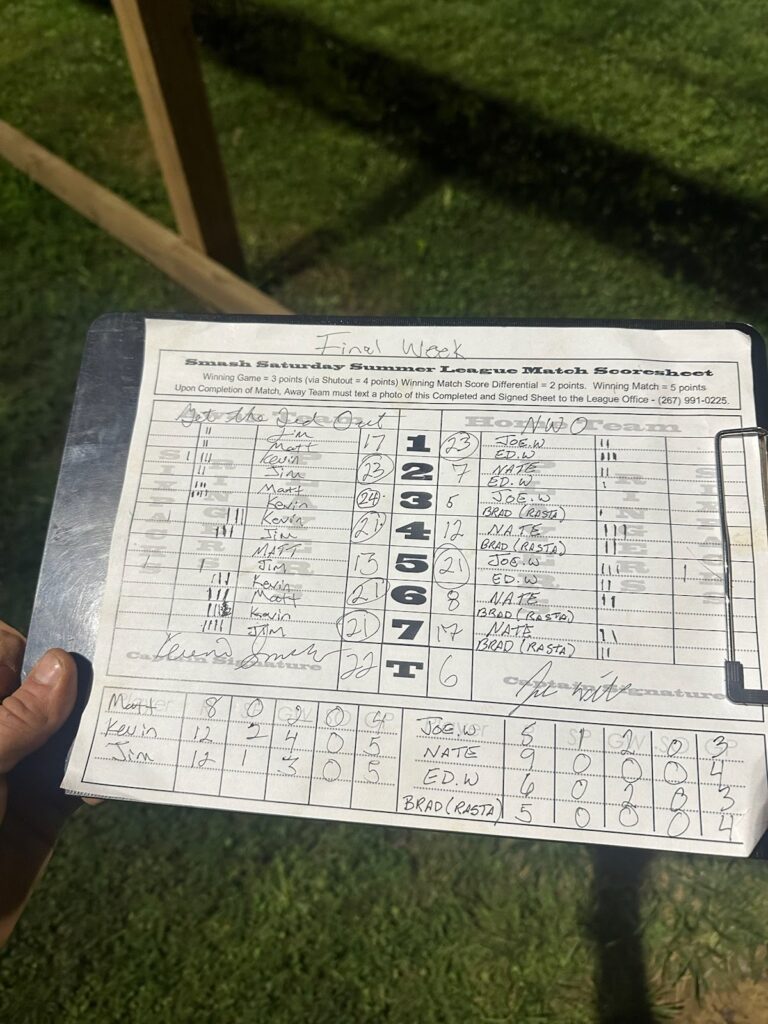 Final Week
Smash Saturday Summer League Match Scoresheet
Winning Game = 3 points (via Shutout = 4 points) Winning Match Score Differential = 2 points. Winning Match = 5 points
Upon Completion of Match, Away Team must text a photo of this Completed and Signed Sheet to the League Office - (267) 991-0225.
Away Team Get The Led Out Home Team NWO
Jim 17 1 23 JOE.W
Matt ED.W
Kevin 23 2 7 NATE
Jim ED.W
Matt 24 3 JOE.W
Kevin BRAD (RASTA)
Kevin 21 4 12 NATE
Jim BRAD (RASTA)
MATT 13 5 21 JOE.W
Jim ED.W
Kevin 21 6 8 NATE
Matt BRAD (RASTA)
Kevin 21 7 17 NATE
JIM BRAD (RASTA)
Captain Signature 22 T 6 Captain Signature
Matt 8 0 2 0 4 JOE.W 5 1 2 0 3
Kevin 12 2 4 0 5 NATE 9 0 0 0 4
Jim 12 1 3 0 5 ED.W 6 0 2 0 3
BRAD (RASTA) 5 0 0 0 4